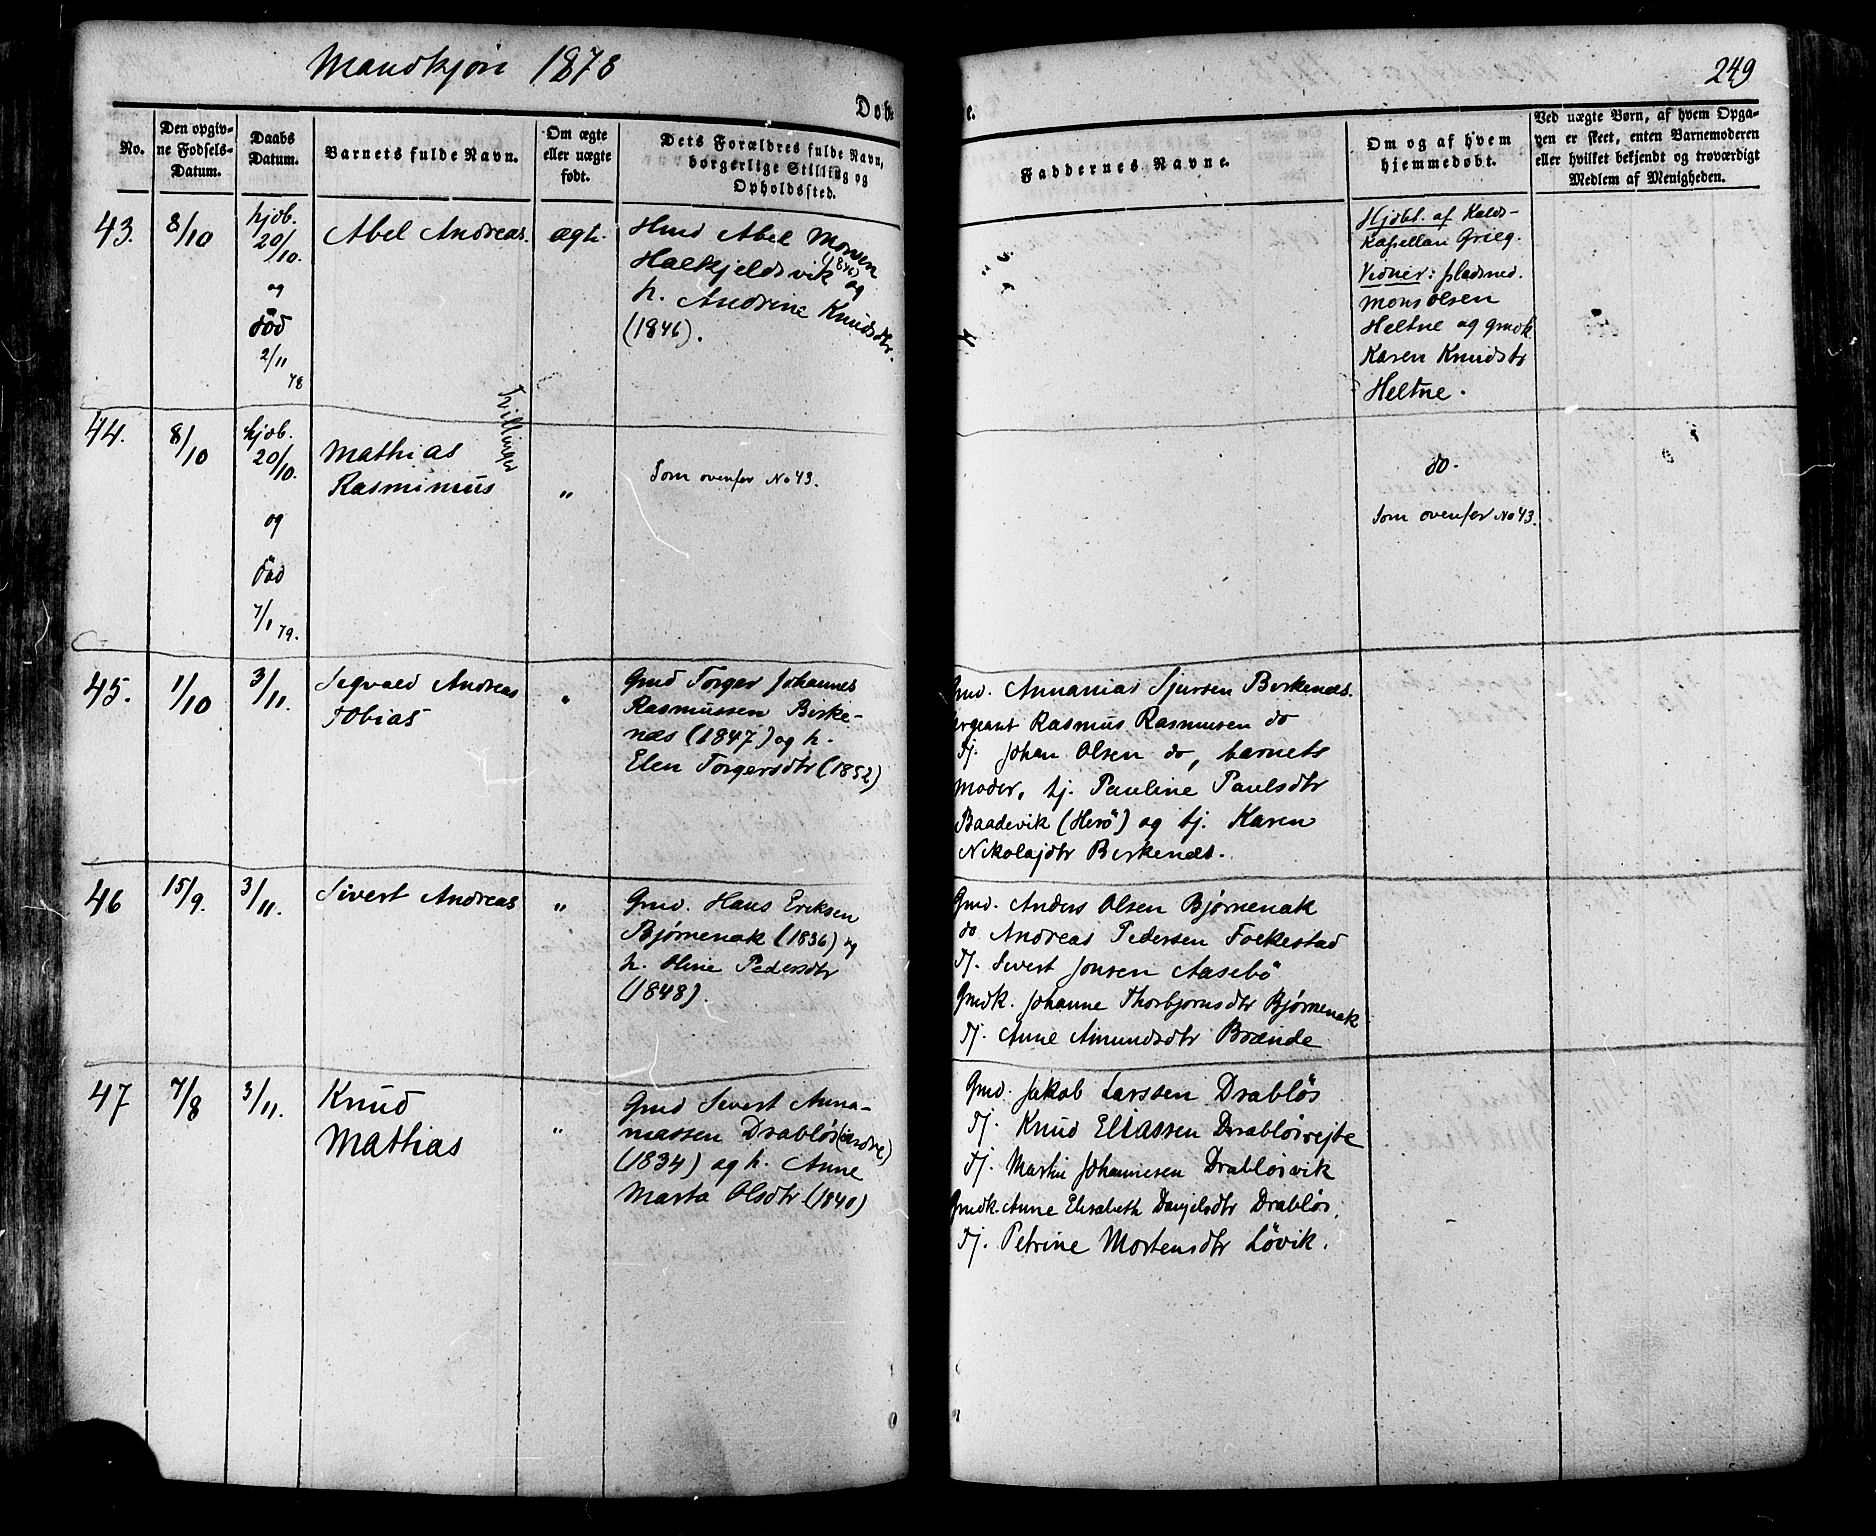 Mandkjøn 1878
249
Døbte.
No.
Den opgiv-
ne Fødsels-
Datum.
Daabs
Datum.
Barnets fulde Navn.
Om ægte
eller uægte
født.
Dets Forældres fulde Navn,
borgerlige Stilling og
Opholdssted.
Faddernes Navne.
Om og af hvem
hjemmedøbt.
Ved uægte Børn, af hvem Opga-
ven er skeet, enten Barnemoderen
eller hvilket bekjendt og troværdigt
Medlem af Menigheden.
43.
8/10
hjdb.
20/10.
og
död
2/11 78
Abel Andreas.
ægte.
Hmd Abel Monsen
(1846)
Halkjeldsvik og
h. Andrine Knudsdtr.
(1846).
Hjdbt. af Kalds-
Kapellan Grieg.
Vidner: pladsmd.
Mons Olsen
Heltne og gmdk
Karen Knudsdtr
Heltne.
44.
8/10
hjdb.
20/10.
og
död
7/1 79.
Mathias
Rasmimus
Tvillinger
"
Som ovenfor No 43.
do.
Som ovenfor No 43.
45.
1/10
3/11.
Sigvald Andreas
Tobias
"
Gmd Torger Johannes
Rasmussen Birke-
næs (1847) og h.
Elen Torgersdtr (1852)
Gmd. Annanias Sjursen Birkenæs.
Sergeant Rasmus Rasmusen do
Tj. Johan Olsen do, barnets
moder, tj. Pauline Paulsdtr
Baadevik (Herö) og tj. Karen
Nikolajdtr Birkenæs.
46
15/9.
3/11.
Sivert Andreas
"
Gmd. Hans Eriksen
Bjørnenak (1836) og
h. Oline Pedersdtr
(1848).
Gmd. Anders Olsen Bjørnenak
do Andreas Pedersen Folkestad
Tj. Sivert Jonsen Aasebö
Gmdk. Johanne Thorbjørnsdtr Bjørnenak
Tj. Anne Amundsdtr Brænde
47
7/8
3/11.
Knud
Mathias
"
Gmd Sivert Anna-
niassen Drabløs (indre)
(1834) og h. Anne
Marta Olsdtr (1840)
Gmd. Jakob Larssen Drabløs
Tj. Knud Eliassen Drabløsrejte
Tj. Martin Johannesen Drabløsvik
Gmdk. Anne Elisabeth Danjelsdtr Drabløs.
Tj. Petrine Mortensdtr Løvik.